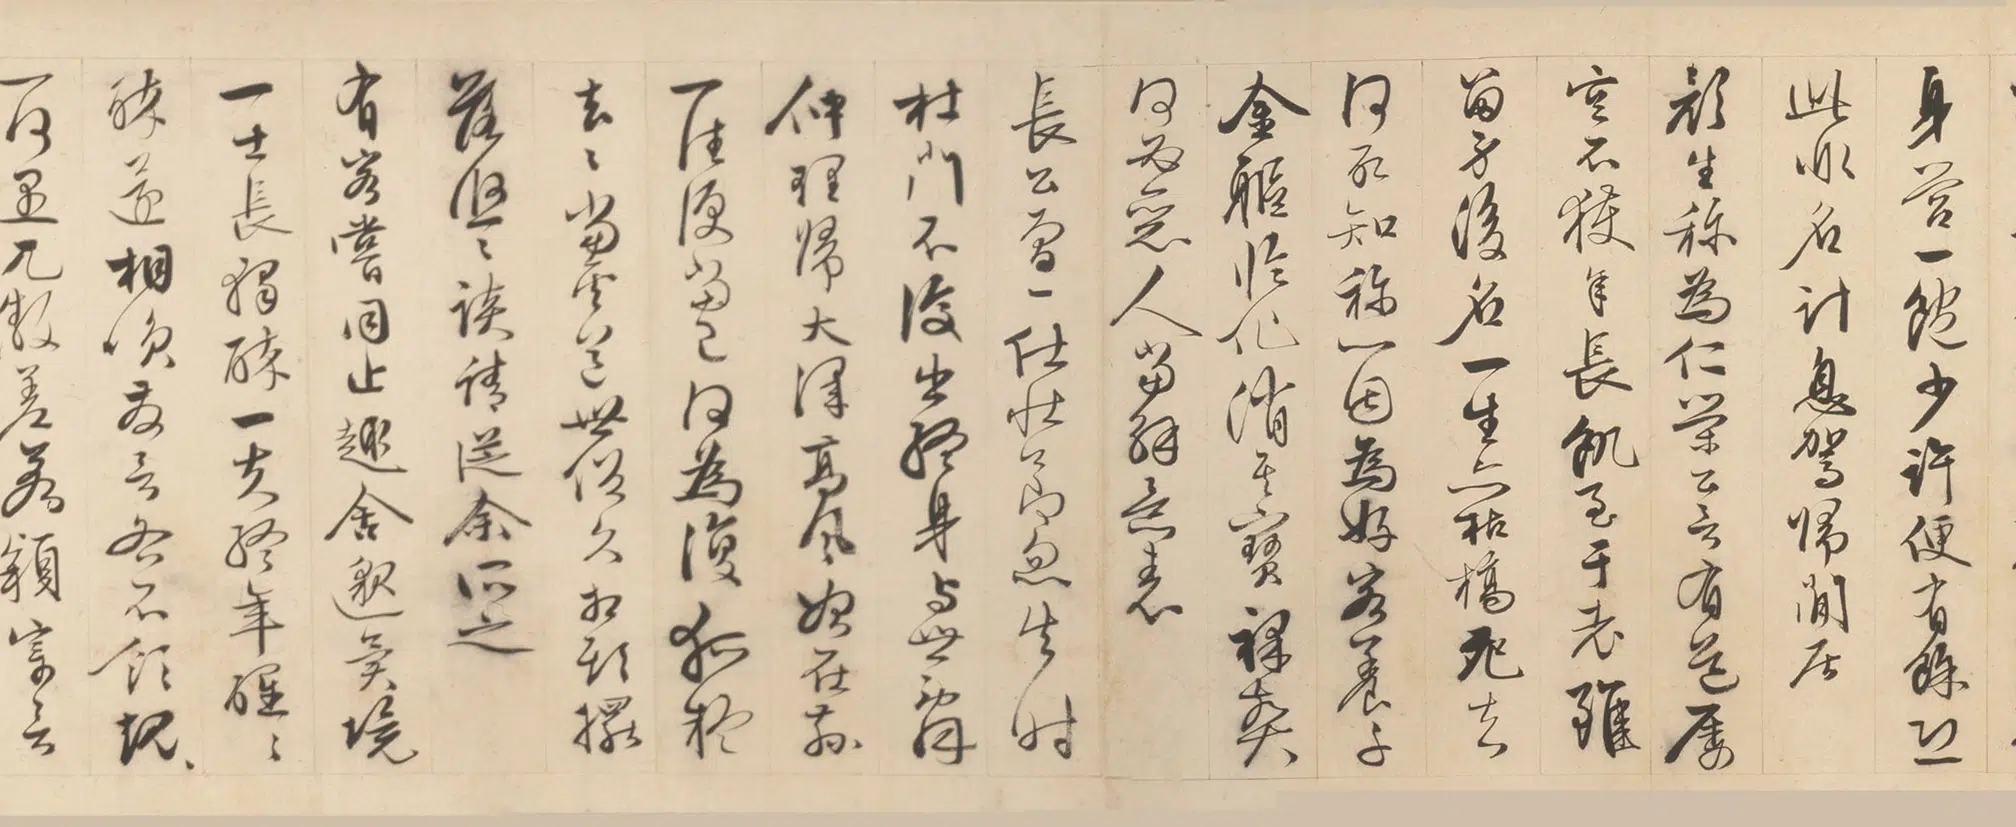 身營一飽少許便有餘恐
此非名計息駕歸閒居
顏生稱為仁榮公言有道屢
空不獲年長飢至于老雖
留身後名一生亦枯槁死去
何所知稱心固為好客養千
金軀臨化消其寶裸葬
何必惡人當解意表
長公曾一仕壯節忽失時
杜門不復出終身與世辭
仲理歸大澤高風始在茲
一往便當已何為復狐疑
去〻當奚道世俗久相欺擺
落悠〻談請從余所之
有客嘗同止趣舍邈異境
一士長獨醉一夫終年醒〻
醉還相笑發言各不領規〻
一何愚兀傲差若穎寄言